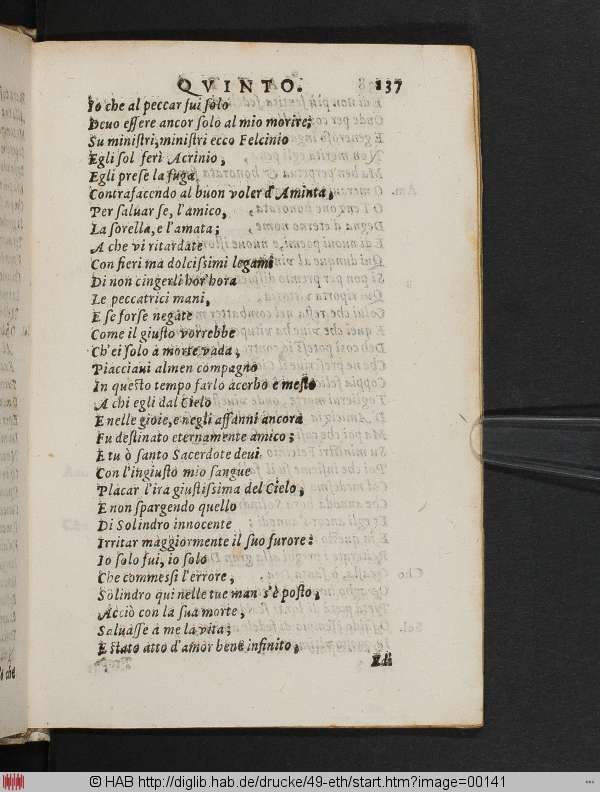 QVINTO. 137
Io che al peccar fui ſolo
Deuo eſſere ancor ſolo al mio morire;
Su miniſtri, miniſtri ecco Felcinio
Egli ſol ferì Acrinio,
Egli preſe la fuga
Contrafacendo al buon voler d'Aminta,
Per ſaluar ſe, l'amico,
La ſorella, e l'amata;
A che vi ritardate
Con fieri ma dolciſsimi legami
Di non cingerli hor'hora
Le peccatrici mani,
E ſe forſe negate
Come il giuſto vorrebbe
Ch'ei ſolo à morte vada,
Piacciaui almen compagno
In queſto tempo farlo acerbo e meſto
A chi egli dal Cielo
E nelle gioie, e negli affanni ancora
Fu deſtinato eternamente amico;
E tu ò ſanto Sacerdote deui
Con l'ingiuſto mio ſangue
Placar l'ira giuſtiſsima del Cielo,
E non ſpargendo quello
Di Solindro innocente
Irritar maggiormente il ſuo furore:
Io ſolo fui, io ſolo
Che commeſsi l'errore,
Solindro qui nelle tue man s'è poſto,
Acciò con la ſua morte,
Saluaſſe à me la vita;
E ſtato atto d'amor bene infinito,
Edi
© HAB http://diglib.hab.de/drucke/49-eth/start.htm?image=00141